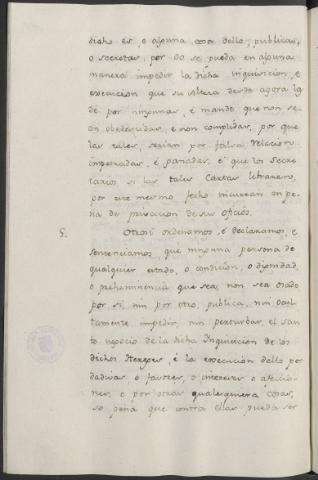 dicho es, o alguna cosa dello, publicas,
o secretas, por do se pueda en alguna
manera impedir la dicha inquisicion, e
execucion que su Alteza desde agora las
dé por ningunas, é mande que non se-
an obedezidas, e non complidas, por que
las tales, serian por falsa relacion
impetradas, é ganadas, é que los Secre
tarios si las tales Cartas libraren,
por ese mesmo fecho incurran en pe-
na de privacion de sus oficios.
5. Otrosi ordenamos, é declaramos, e
sentenciamos que ninguna persona de
qualquier estado, o condicion, o dignidad,
o preheminencia que sea, non sea osado
por si, nin por otro, publica, nin ocul-
tamente impedir, nin perturbar, el san-
to negocio de la dicha Inquisicion de los
dichos Hereges, é la execucion dello por
dadivas o favores, o intereses o aficio-
nes, o por otras qualesquiera cosas,
so pena que contra ellos pueda ser